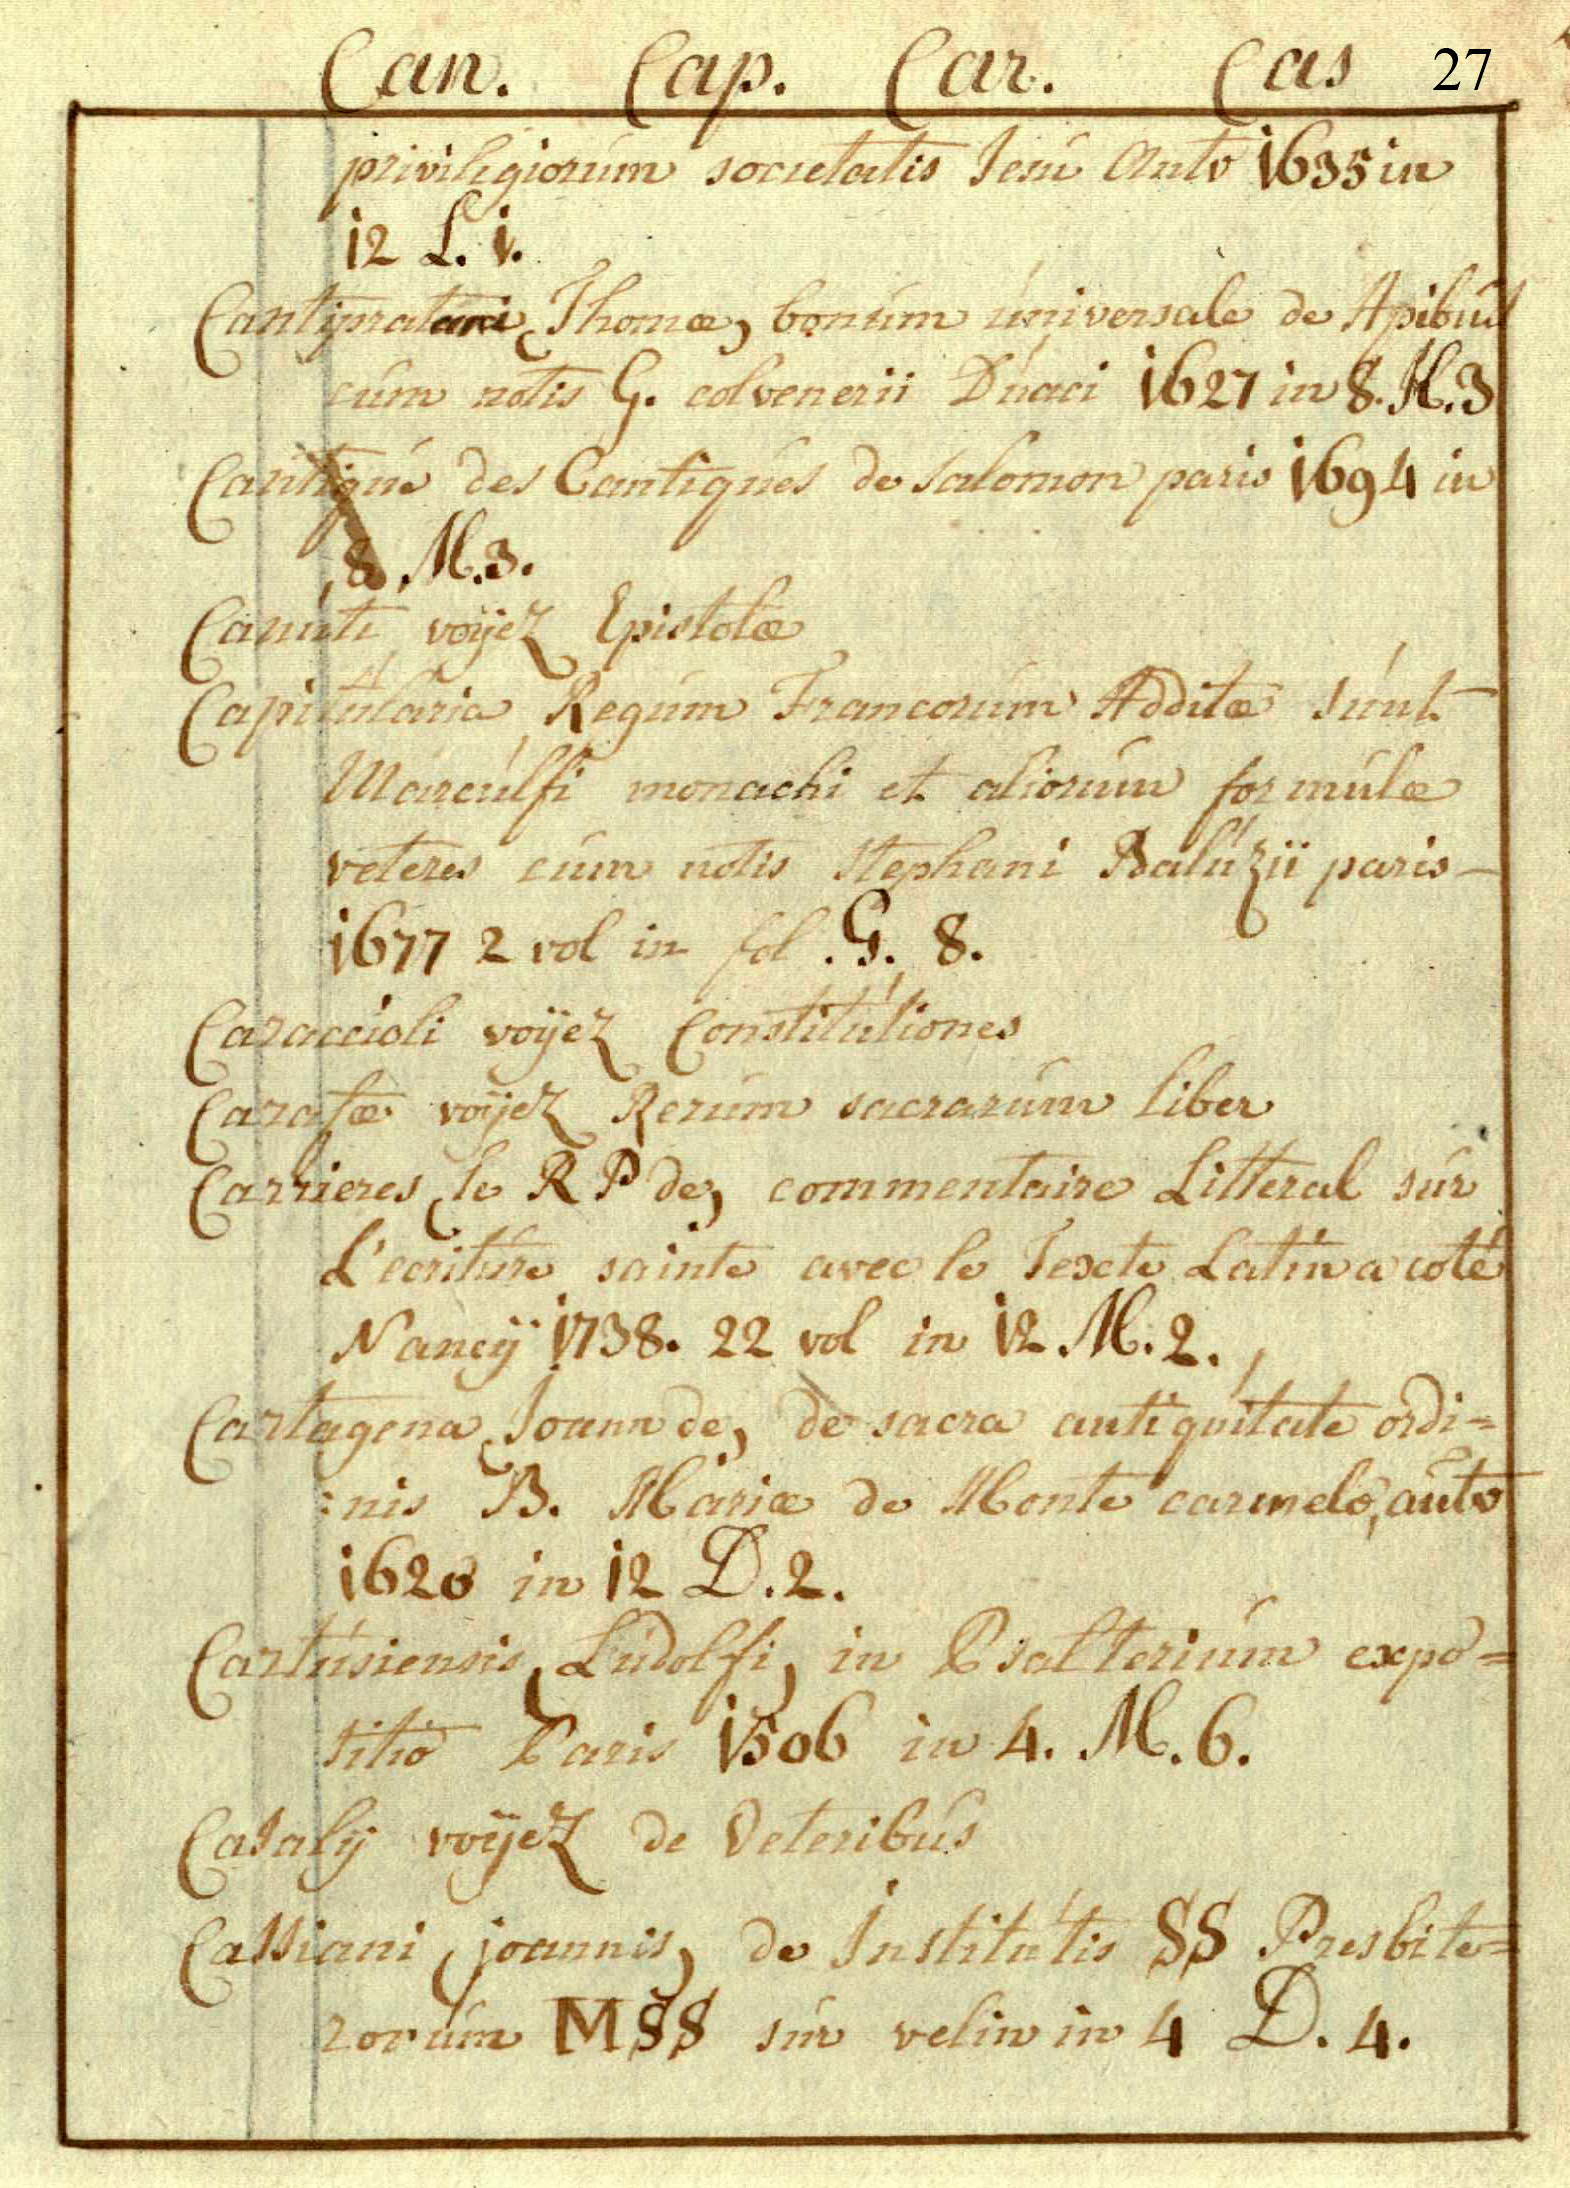 Can. Cap. Car. Cas 27
priviligiorum societatis Jesu Antv 1635 in
12 L. 1.
Cantipratani (Thomæ) bonum universale de Apibus
cum notis G. colvenerii Duaci 1627 in 8. H.3
Cantique des Cantiques de Salomon paris 1694 in
8. M.3.
Canuti voÿez Epistolæ
Capitularia Regum Francorum Additæ sunt
Marculfi monachi et aliorum formulæ
veteres cum notis Stephani Baluzii paris
1677 2 vol in fol. G. 8.
Caraccioli voÿez Constitutiones
Carafæ voÿez Rerum sacrarum liber
Carrieres (le R P de) commentaire Litteral sur
L'ecriture sainte avec le Texte Latin a coté
Nancÿ 1738. 22 vol in 12. M. 2.
Cartagena (Joann de) de sacra antiquitate ordi=
:nis B. Mariæ de Monte carmelo, antv
1620 in 12 D.2.
Cartusiensis (Ludolfi) in Psalterium expo=
sitio Paris 1506 in 4. M. 6.
Casalÿ voÿez de Veteribus
Cassiani (joannis) de Institutis SS Presbite=
rorum MSS sur velin in 4 D. 4.